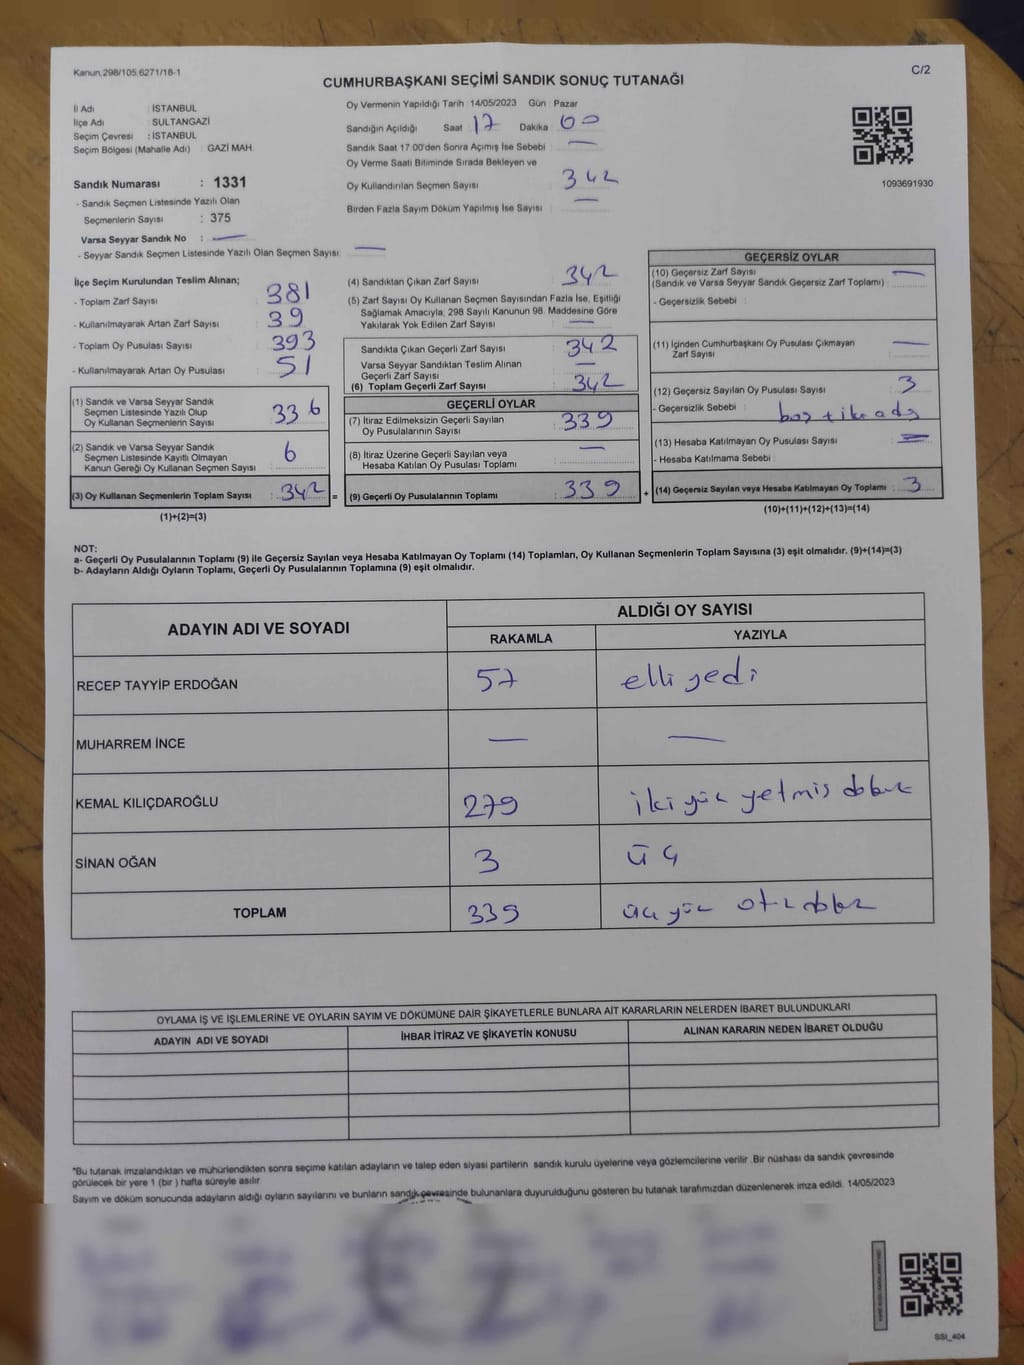 Kanun.298/105.6271/18-1
C/2
CUMHURBAŞKANI SEÇİMİ SANDIK SONUÇ TUTANAĞI
İl Adı : İSTANBUL
İlçe Adı : SULTANGAZİ
Seçim Çevresi : İSTANBUL
Seçim Bölgesi (Mahalle Adı) : GAZİ MAH.
Sandık Numarası : 1331
- Sandık Seçmen Listesinde Yazılı Olan
Seçmenlerin Sayısı : 375
Varsa Seyyar Sandık No : —
- Seyyar Sandık Seçmen Listesinde Yazılı Olan Seçmen Sayısı : —
Oy Vermenin Yapıldığı Tarih : 14/05/2023 Gün : Pazar
Sandığın Açıldığı Saat 17 Dakika 00
Sandık Saat 17.00'den Sonra Açımış İse Sebebi : —
Oy Verme Saati Bitiminde Sırada Bekleyen ve
Oy Kullandırılan Seçmen Sayısı : 342
Birden Fazla Sayım Döküm Yapılmış İse Sayısı : —
1093691930
İlçe Seçim Kurulundan Teslim Alınan;
- Toplam Zarf Sayısı : 381
- Kullanılmayarak Artan Zarf Sayısı : 39
- Toplam Oy Pusulası Sayısı : 393
- Kullanılmayarak Artan Oy Pusulası : 51
(1) Sandık ve Varsa Seyyar Sandık
Seçmen Listesinde Yazılı Olup
Oy Kullanan Seçmenlerin Sayısı : 336
(2) Sandık ve Varsa Seyyar Sandık
Seçmen Listesinde Kayıtlı Olmayan
Kanun Gereği Oy Kullanan Seçmen Sayısı : 6
(3) Oy Kullanan Seçmenlerin Toplam Sayısı : 342 =
(1)+(2)=(3)
(4) Sandıktan Çıkan Zarf Sayısı : 342
(5) Zarf Sayısı Oy Kullanan Seçmen Sayısından Fazla İse, Eşitliği
Sağlamak Amacıyla; 298 Sayılı Kanunun 98. Maddesine Göre
Yakılarak Yok Edilen Zarf Sayısı : —
Sandıkta Çıkan Geçerli Zarf Sayısı : 342
Varsa Seyyar Sandıktan Teslim Alınan
Geçerli Zarf Sayısı : —
(6) Toplam Geçerli Zarf Sayısı : 342
GEÇERLİ OYLAR
(7) İtiraz Edilmeksizin Geçerli Sayılan
Oy Pusulalarının Sayısı : 339
(8) İtiraz Üzerine Geçerli Sayılan veya
Hesaba Katılan Oy Pusulası Toplamı : —
(9) Geçerli Oy Pusulalarının Toplamı : 339 +
GEÇERSİZ OYLAR
(10) Geçersiz Zarf Sayısı : —
(Sandık ve Varsa Seyyar Sandık Geçersiz Zarf Toplamı)
- Geçersizlik Sebebi :
(11) İçinden Cumhurbaşkanı Oy Pusulası Çıkmayan
Zarf Sayısı : —
(12) Geçersiz Sayılan Oy Pusulası Sayısı : 3
- Geçersizlik Sebebi :
(13) Hesaba Katılmayan Oy Pusulası Sayısı : —
- Hesaba Katılmama Sebebi :
(14) Geçersiz Sayılan veya Hesaba Katılmayan Oy Toplamı : 3
(10)+(11)+(12)+(13)=(14)
NOT:
a- Geçerli Oy Pusulalarının Toplamı (9) ile Geçersiz Sayılan veya Hesaba Katılmayan Oy Toplamı (14) Toplamları, Oy Kullanan Seçmenlerin Toplam Sayısına (3) eşit olmalıdır. (9)+(14)=(3)
b- Adayların Aldığı Oyların Toplamı, Geçerli Oy Pusulalarının Toplamına (9) eşit olmalıdır.
ADAYIN ADI VE SOYADI ALDIĞI OY SAYISI
RAKAMLA YAZIYLA
RECEP TAYYİP ERDOĞAN 57 elli yedi
MUHARREM İNCE — —
KEMAL KILIÇDAROĞLU 279 iki yüz yetmiş dokuz
SİNAN OĞAN 3 üç
TOPLAM 339 üç yüz otuz dokuz
OYLAMA İŞ VE İŞLEMLERİNE VE OYLARIN SAYIM VE DÖKÜMÜNE DAİR ŞİKAYETLERLE BUNLARA AİT KARARLARIN NELERDEN İBARET BULUNDUKLARI
ADAYIN ADI VE SOYADI İHBAR İTİRAZ VE ŞİKAYETİN KONUSU ALINAN KARARIN NEDEN İBARET OLDUĞU
*Bu tutanak imzalandıktan ve mühürlendikten sonra seçime katılan adayların ve talep eden siyasi partilerin sandık kurulu üyelerine veya gözlemcilerine verilir .Bir nüshası da sandık çevresinde
görülecek bir yere 1 (bir ) hafta süreyle asılır.
Sayım ve döküm sonucunda adayların aldığı oyların sayılarını ve bunların sandık çevresinde bulunanlara duyurulduğunu gösteren bu tutanak tarafımızdan düzenlenerek imza edildi. 14/05/2023
SSİ_404